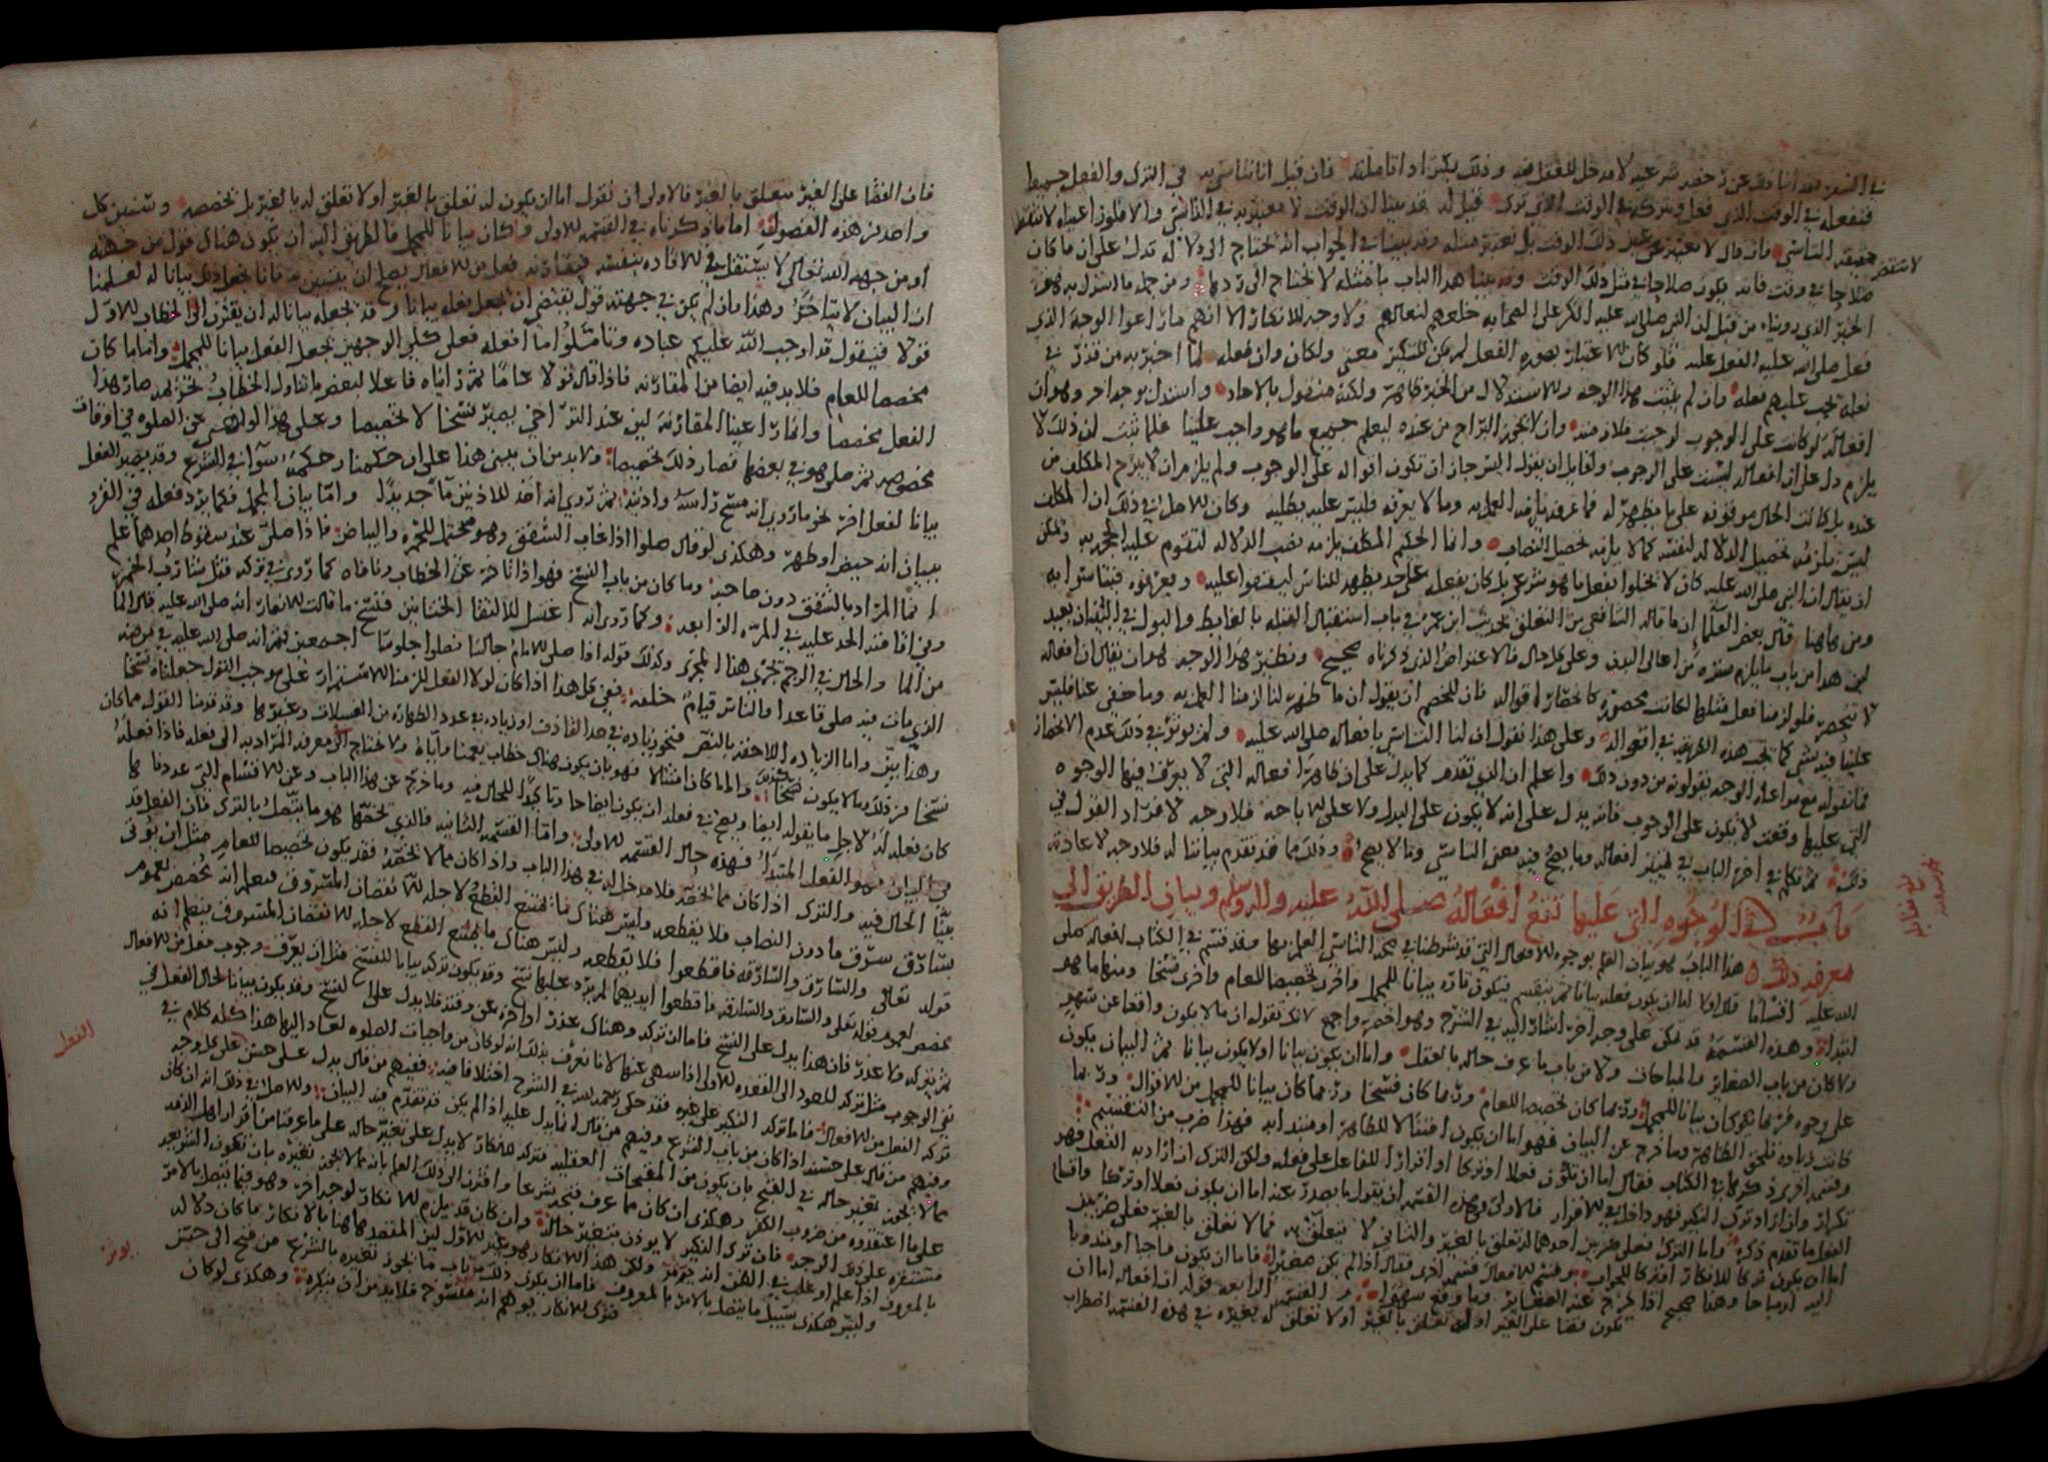 في الوقت الذي فعل ويتركه في الوقت الذي ترك قيل له قد بينا ان الوقت لا معتبر به في التأسي
حقيقة التأسي فان قال لا نعتبر عين ذلك الوقت بل نعتبر مثله وقد بينا في الجواب انه يحتاج الى دلالة تدل على ان ما كان
صلاحا في وقت فانه يكون صلاحا في مثل ذلك الوقت وقد بينا هذا الباب بأمثلة لا يحتاج الى ردها ومن جملة ما استدل به
الخبر الذي رويناه من قبل ان النبي صلى الله عليه انكر على الصحابة خلعهم لنعالهم ولا وجه للانكار الا انهم ما راعوا الوجه الذي
فعل صلى الله عليه الفعل عليه فلو كان الاعتبار بصورة الفعل لم يكن للنكير معنى ولكان
وان لم يثبت هذا الوجه والاستدلال من الخبر ظاهر ولكنه منقول بالآحاد واستدل بوجه آخر وهو ان
افعاله لو كانت على الوجوب
يلزم دل على ان افعاله ليست على الوجوب ولقائل ان يقول اليس جاز ان تكون اقواله على الوجوب ولم يلزم ان لا يبرح المكلف من
عنده بل كانت الحال موقوفة على ما يظهر له فما عرفه يلزمه العمل به وما لا يعرفه فليس عليه بطلبه وكان الاصل في ذلك ان المكلف
ليس يلزمه تحصيل الدلالة لنفسه كما لا يلزمه تحصيل النصاب وانما الحكيم المكلف يلزمه نصب الدلالة لتقوم عليه الحجة به
ان يقال ان النبي صلى الله عليه كان لا يخلوا بفعل ما هو شرعي بل كان يفعله على حد يظهر للناس
ومن هاهنا قال بعض العلماء ان ما قاله الشافعي من التعلق بحديث ابن عمر في باب استقبال القبلة بالغايط والبول في البنيان بعيد
لان هذا من باب ما يلزم ستره عن اعالي البدن وعلى كل حال فالاعتراض الذي ذكرناه صحيح ونظير هذا الوجه هو ان يقال ان افعاله
لا تنحصر فلو لزمنا فعل مثلها لكانت محصورة كانحصار اقواله فان للخصم ان يقول ان ما ظهر لنا لزمنا العمل به وما خفي عنا فليس
علينا فيه شيء كما تجب هذه الطريقة في اقواله وعلى هذا نقول ان لنا التأسي بافعاله صلى الله عليه
واعلم ان الذي تقدم كما يدل على ان ظاهر افعاله التي لا يعرف فيها الوجوه
التي عليها وقعت لا يكون على الوجوب فانه يدل على انه لا يكون على الندب ولا على الاباحة فلا وجه لافراد القول في
ذلك ثم تكلم في آخر الباب في تمييز افعاله وما يصح فيه معنى التأسي وما لا يصح وذلك مما قد تقدم بياننا له فلا وجه لاعادته
باب في الوجوه التي عليها تقع افعاله صلى الله عليه واله وسلم وبيان الطريق الى
معرفة ذلك هذا الباب هو بيان العلم بوجوه الافعال التي قد شرطنا في صحة التأسي العلم بها وقد قسم في الكتاب افعاله صلى
الله عليه اقساما فقال اولا اما ان يكون فعله بيانا ثم ينقسم فيكون تارة بيانا للمجمل واخرى تخصيصا للعام واخرى نسخا ومنها ما هو
ابتداء وهذه القسمة قد تمكن على وجه آخر اشار اليه في الشرح وهو اخصر واجمع لانك تقول ان ما لا يكون واقعا عن سهو
ولا كان من باب الصغائر والمباحات ولا من باب ما عرف حاله بالعقل واما ان يكون بيانا او لا يكون بيانا ثم البيان يكون
على وجوه فربما كان بيانا للمجمل وربما كان تخصيصا للعام وربما كان نسخا وربما كان بيانا للمجمل من الاقوال وربما
كانت زيادة تلحق الظاهر وما خرج عن البيان فهو اما ان يكون امتثالا للظاهر او مبتدأ به فهذا ضرب من التقسيم
وقسمة اخرى ذكرها في الكتاب فقال اما ان تكون فعلا او تركا او اقرارا للفاعل على فعله ولكن الترك ان اراد به الفعل فهو
تكرار وان اراد ترك النكير فهو داخل في الاقرار فالاولى في هذه القسمة ان يقول ما يصدر عنه اما ان يكون فعلا او تركا واقسام
الفعل ما تقدم ذكره واما الترك فعلى ضربين احدهما له تعلق بالغير والثاني لا يتعلق به فما لا تعلق بالغير فعلى ضربين
اما ان يكون تركا للانكار او تركا للجواب وقسم الافعال قسمة اخرى فقال اذا لم يكن صغيرا فاما ان يكون واجبا او مندوبا
اليه او مباحا وهذا صحيح اذا خرج عنه الصغائر وما وقع سهوا والقسمة الرابعة قوله ان افعاله اما ان
تكون قضا على الغير او له تعلق بالغير او لا تعلق له بغيره في هذه القسمة اضطراب
فان القضا على الغير يتعلق بالغير فالاولى ان نقول اما ان يكون له تعلق بالغير او لا تعلق له بالغير بل تخصصه وسنبين كل
واحد من هذه الفصول اما ما ذكرناه في القسمة الاولى وكان بيانا للمجمل فالطريق اليه ان يكون هناك قول من جهته
او من جهة الله تعالى لا يستقل في الافادة بنفسه فيقارنه فعل من الافعال يصح ان يتبين به فانا نجعل ذلك بيانا له لعلمنا
ان البيان لا يتأخر وهذا وان لم يكن في جهته قول يقتضي ان نجعل فعله بيانا وقد نجعله بيانا له ان يقترن الى الخطاب الاول
قولا فيقول قد اوجب الله عليكم عبادة وتأملوا ما افعله فعلى كلي الوجهين نجعل الفعل بيانا للمجمل واما ما كان
مخصصا للعام فلا بد فيه ايضا من المقارنة فاذا قال قولا عاما ثم رأيناه فاعلا لبعض ما تناوله الخطاب
الفعل مخصصا وانما راعينا المقارنة لان عند التراخي يصير نسخا لا تخصيصا وعلى هذا لو نهى عن الصلوة في اوقات
مخصوصة ثم صلى هو في بعضها لصار ذلك تخصيصا ولا بد من ان يبنى هذا على ان حكمنا وحكمه سوآ في الشرع وقد يصير الفعل
بيانا لفعل آخر نحو ما روي انه مسح رأسه واذنيه ثم روي انه اخذ للاذنين مآ جديدا واما بيان المجمل فكما يرد فعله في القرء
ببيان انه حيض او طهر وهكذى لو قال صلوا اذا غاب الشفق وهو محتمل للحمرة والبياض فاذا صلى عند سقوط احدهما علم
انما المراد بالشفق دون صاحبه وما كان من باب النسخ فهو اذا تأخر عن الخطاب ونافاه كما روي في تركه قتل شارب الخمر
وفي اقامته الحد عليه في المرة الرابعة وكما روي انه اغتسل لالتقا الختانين فنسخ ما قالت الانصار انه صلى الله عليه قال الما
من الما والحال في الرجم تجري هذا المجرى وكذلك قوله اذا صلى الامام جالسا فصلوا جلوسا اجمعين ثم انه صلى الله عليه في مرضه
الذي مات فيه صلى قاعدا والناس قيام خلفه ففي كل هذا اذا كان لولا الفعل للزمنا الاستمرار على موجب القول جعلناه نسخا
وهذا بين واما الزيادة اللاحقة بالنص فنحو زيادة في حد القاذف او زيادة في عدد الطهارة من الغسلات وغيرها وقد قدمنا القول
نسخا من ذلك وما لا يكون نسخا واما ما كان امتثالا فهو بان يكون هناك خطاب يعمنا واياه ولا نحتاج الى معرفة المراد به الى فعله فاذا فعله
كان فعله له لاجل ما يقوله ايضا ويصح في فعله ان يكون ايضاحا وتأكيدا للحال فيه وما خرج عن هذا الباب وعن الاقسام التي عددناها
في البيان فهو الفعل المبتدأ فهذه حال القسمة الاولى واما القسمة الثانية فالذي نخصها هو ما يتصل بالترك فان الفعل قد
بينا الحال فيه والترك اذا كان مما نخصه فلا مدخل له في هذا الباب واذا كان مما لا نخصه فقد يكون تخصيصا للعام مثل ان يؤتى
بسارق سرق ما دون النصاب فلا يقطعه وليس هناك ما يمنع القطع لاجله الا نقصان المسروق فنعلم انه تخصيص لعموم
قوله تعالى والسارق والسارقة فاقطعوا فلا يقطعه وليس هناك ما يمنع القطع لاجله الا نقصان المسروق فنعلم انه
تخصيص لعموم قوله تعالى والسارق والسارقة فاقطعوا ايديهما
ثم يتركه ولا عذر فان هذا يدل على النسخ فاما ان تركه وهناك عذر او اخره عن وقته فلا يدل على النسخ وقد يكون بيانا لحال الفعل في
نفي الوجوب مثل تركه للعود الى القعدة الاولى اذا سهى عنها لانا نعرف بذلك انه لو كان من واجبات الصلوة لعاد اليها هذا كله كلام في
تركه الفعل من الافعال فاما تركه النكير على غيره فقد حكى رحمه الله في الشرح اختلافا فيه ففيهم من قال يدل على حسنه على كل وجه
وفيهم من قال على حسنه اذا كان من باب الشرع وفيهم من قال انما يدل عليه اذا لم يكن قد تقدم فيه البيان والاصل في ذلك انه ان كان
مما لا يجوز تغير حاله في القبح بان يكون من المقبحات العقلية فتركه للانكار لا يدل على تغير حاله على ما عرفنا من اقرار اهل الذمة
على ما اعتقدوه من ضروب الكفر وهكذى ان كان مما عرف قبحه شرعا واقترن الى ذلك العلم بانه مما لا يجوز تغيره بان تكون الشريعة
مستقرة على ذلك الوجه فان ترك النكير لا يؤذن بتغير حاله وان كان قد يلزم الانكار لوجه آخر وهو فيما يتصل بالامر
بالمعروف اذا علم او غلب في الظن انه يؤثر ولكن هذا الانكار هو غير الاول لان المقصد هاهنا بالانكار ما كان دلالة
وليس هكذى سبيل ما يتصل بالامر بالمعروف فاما ان يكون ذلك من باب ما يجوز تغيره بالشرع من قبح الى حسن
فترك الانكار يوهم انه منسوخ فلا بد من ان ينكره وهكذى لو كان
الفعل
يؤثر